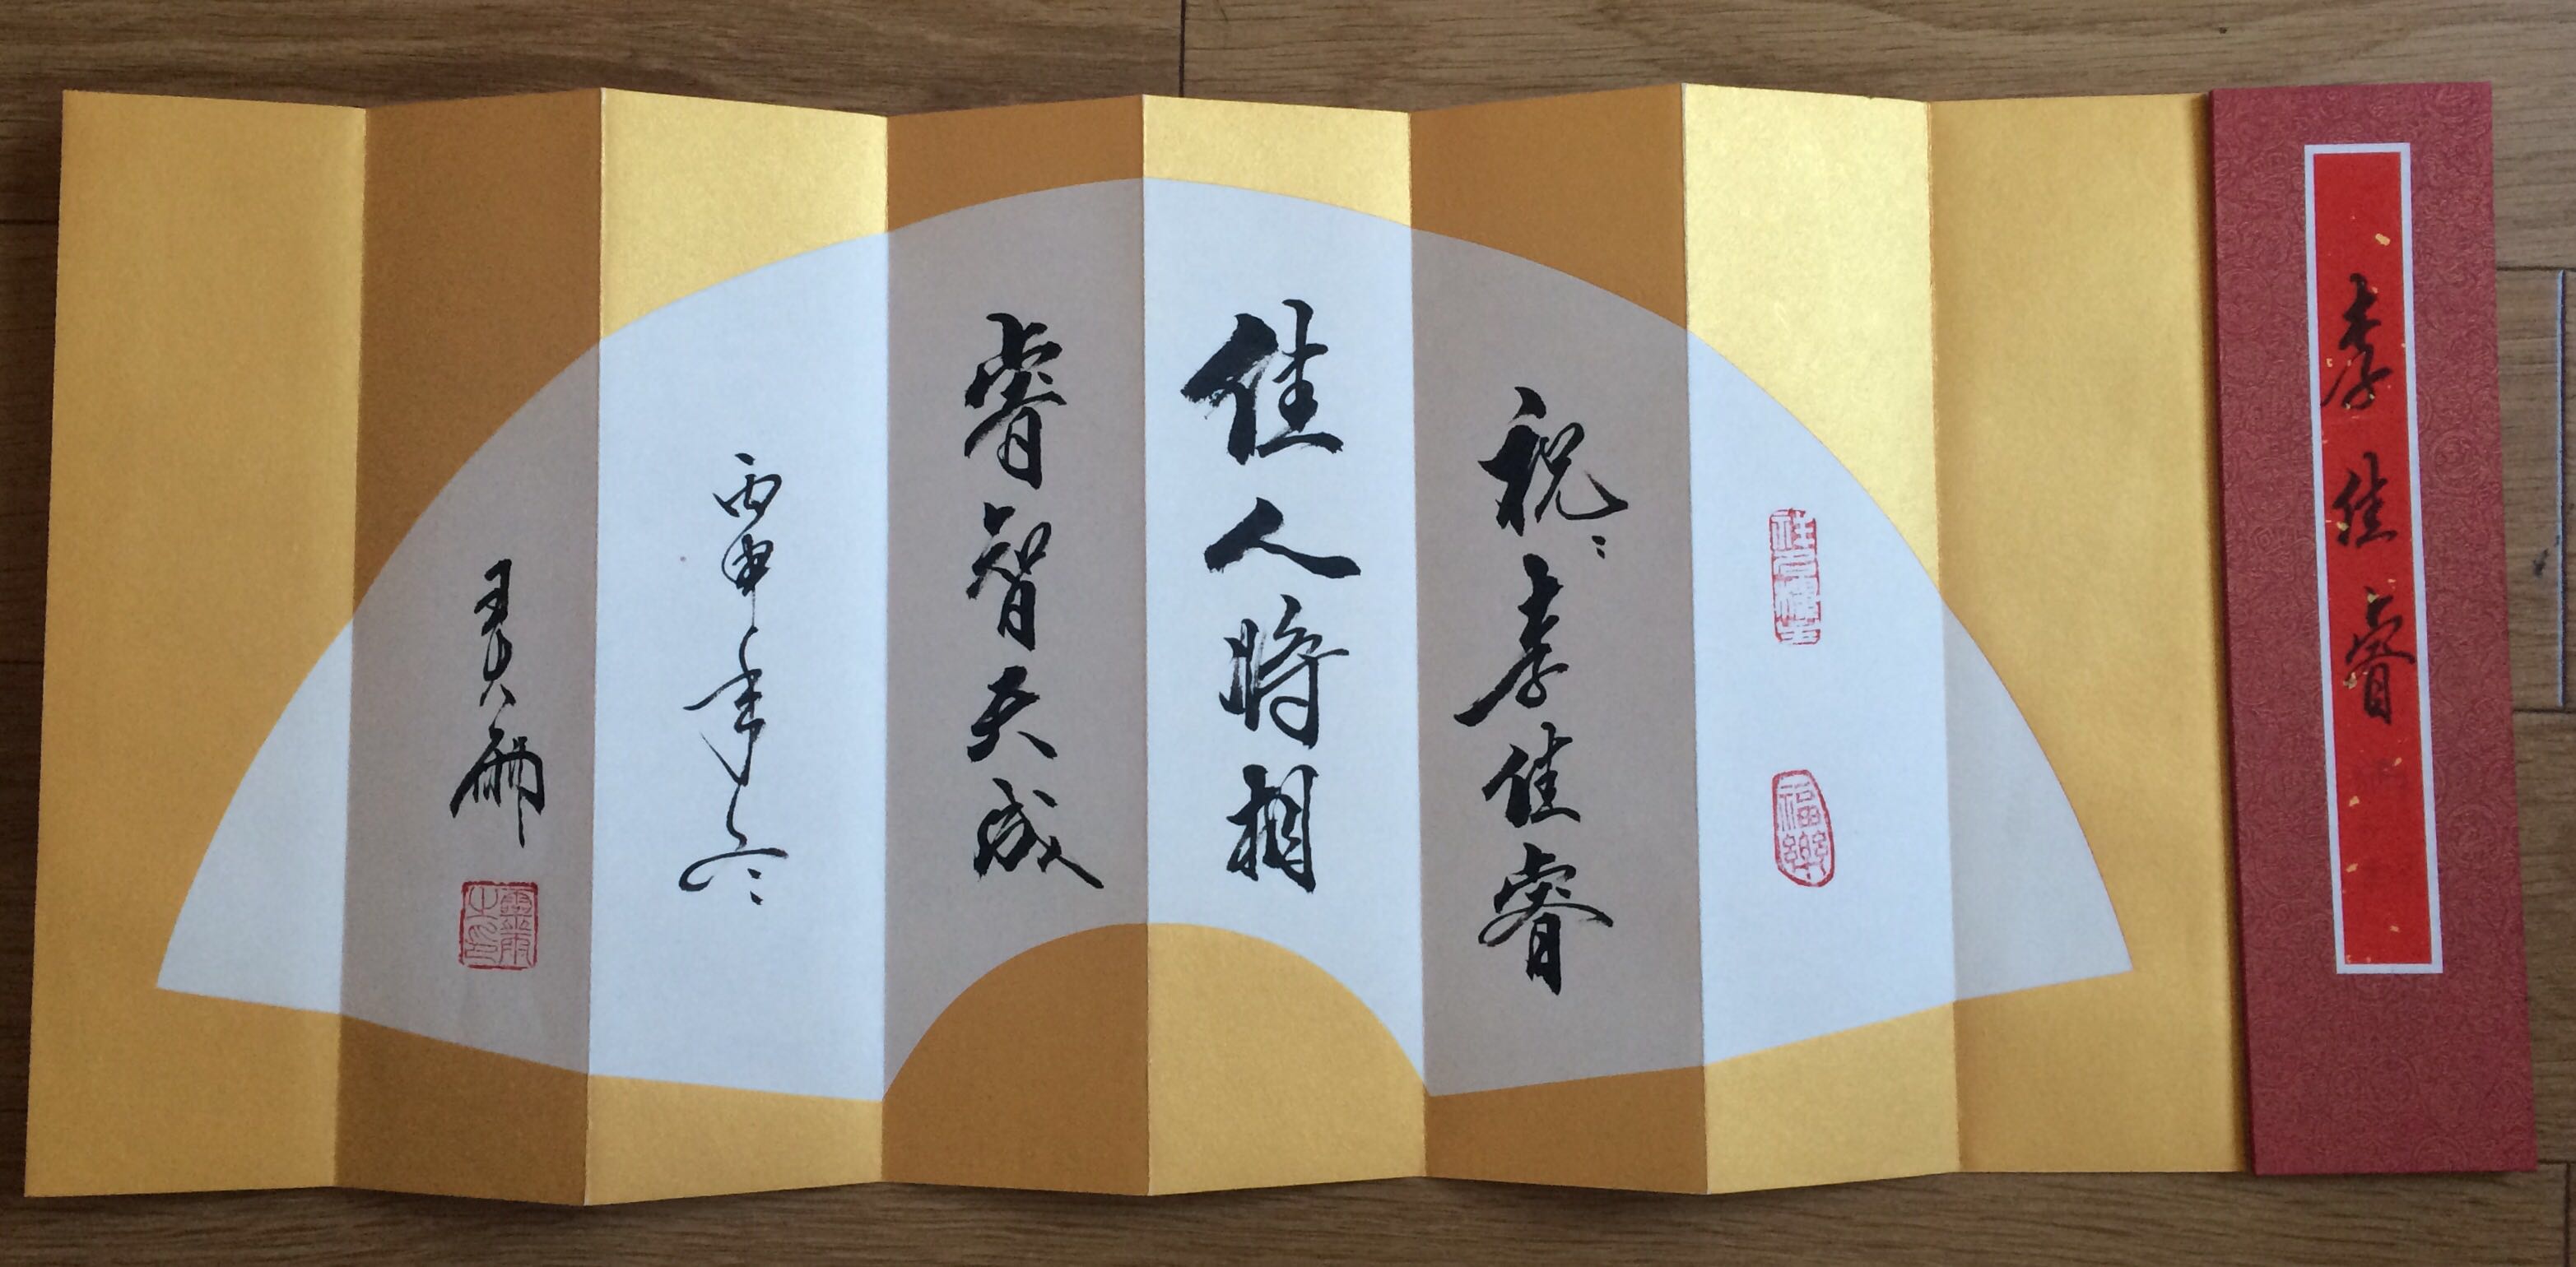 李佳睿
祝李佳睿
佳人将相
睿智天成
丙申年冬
福樂